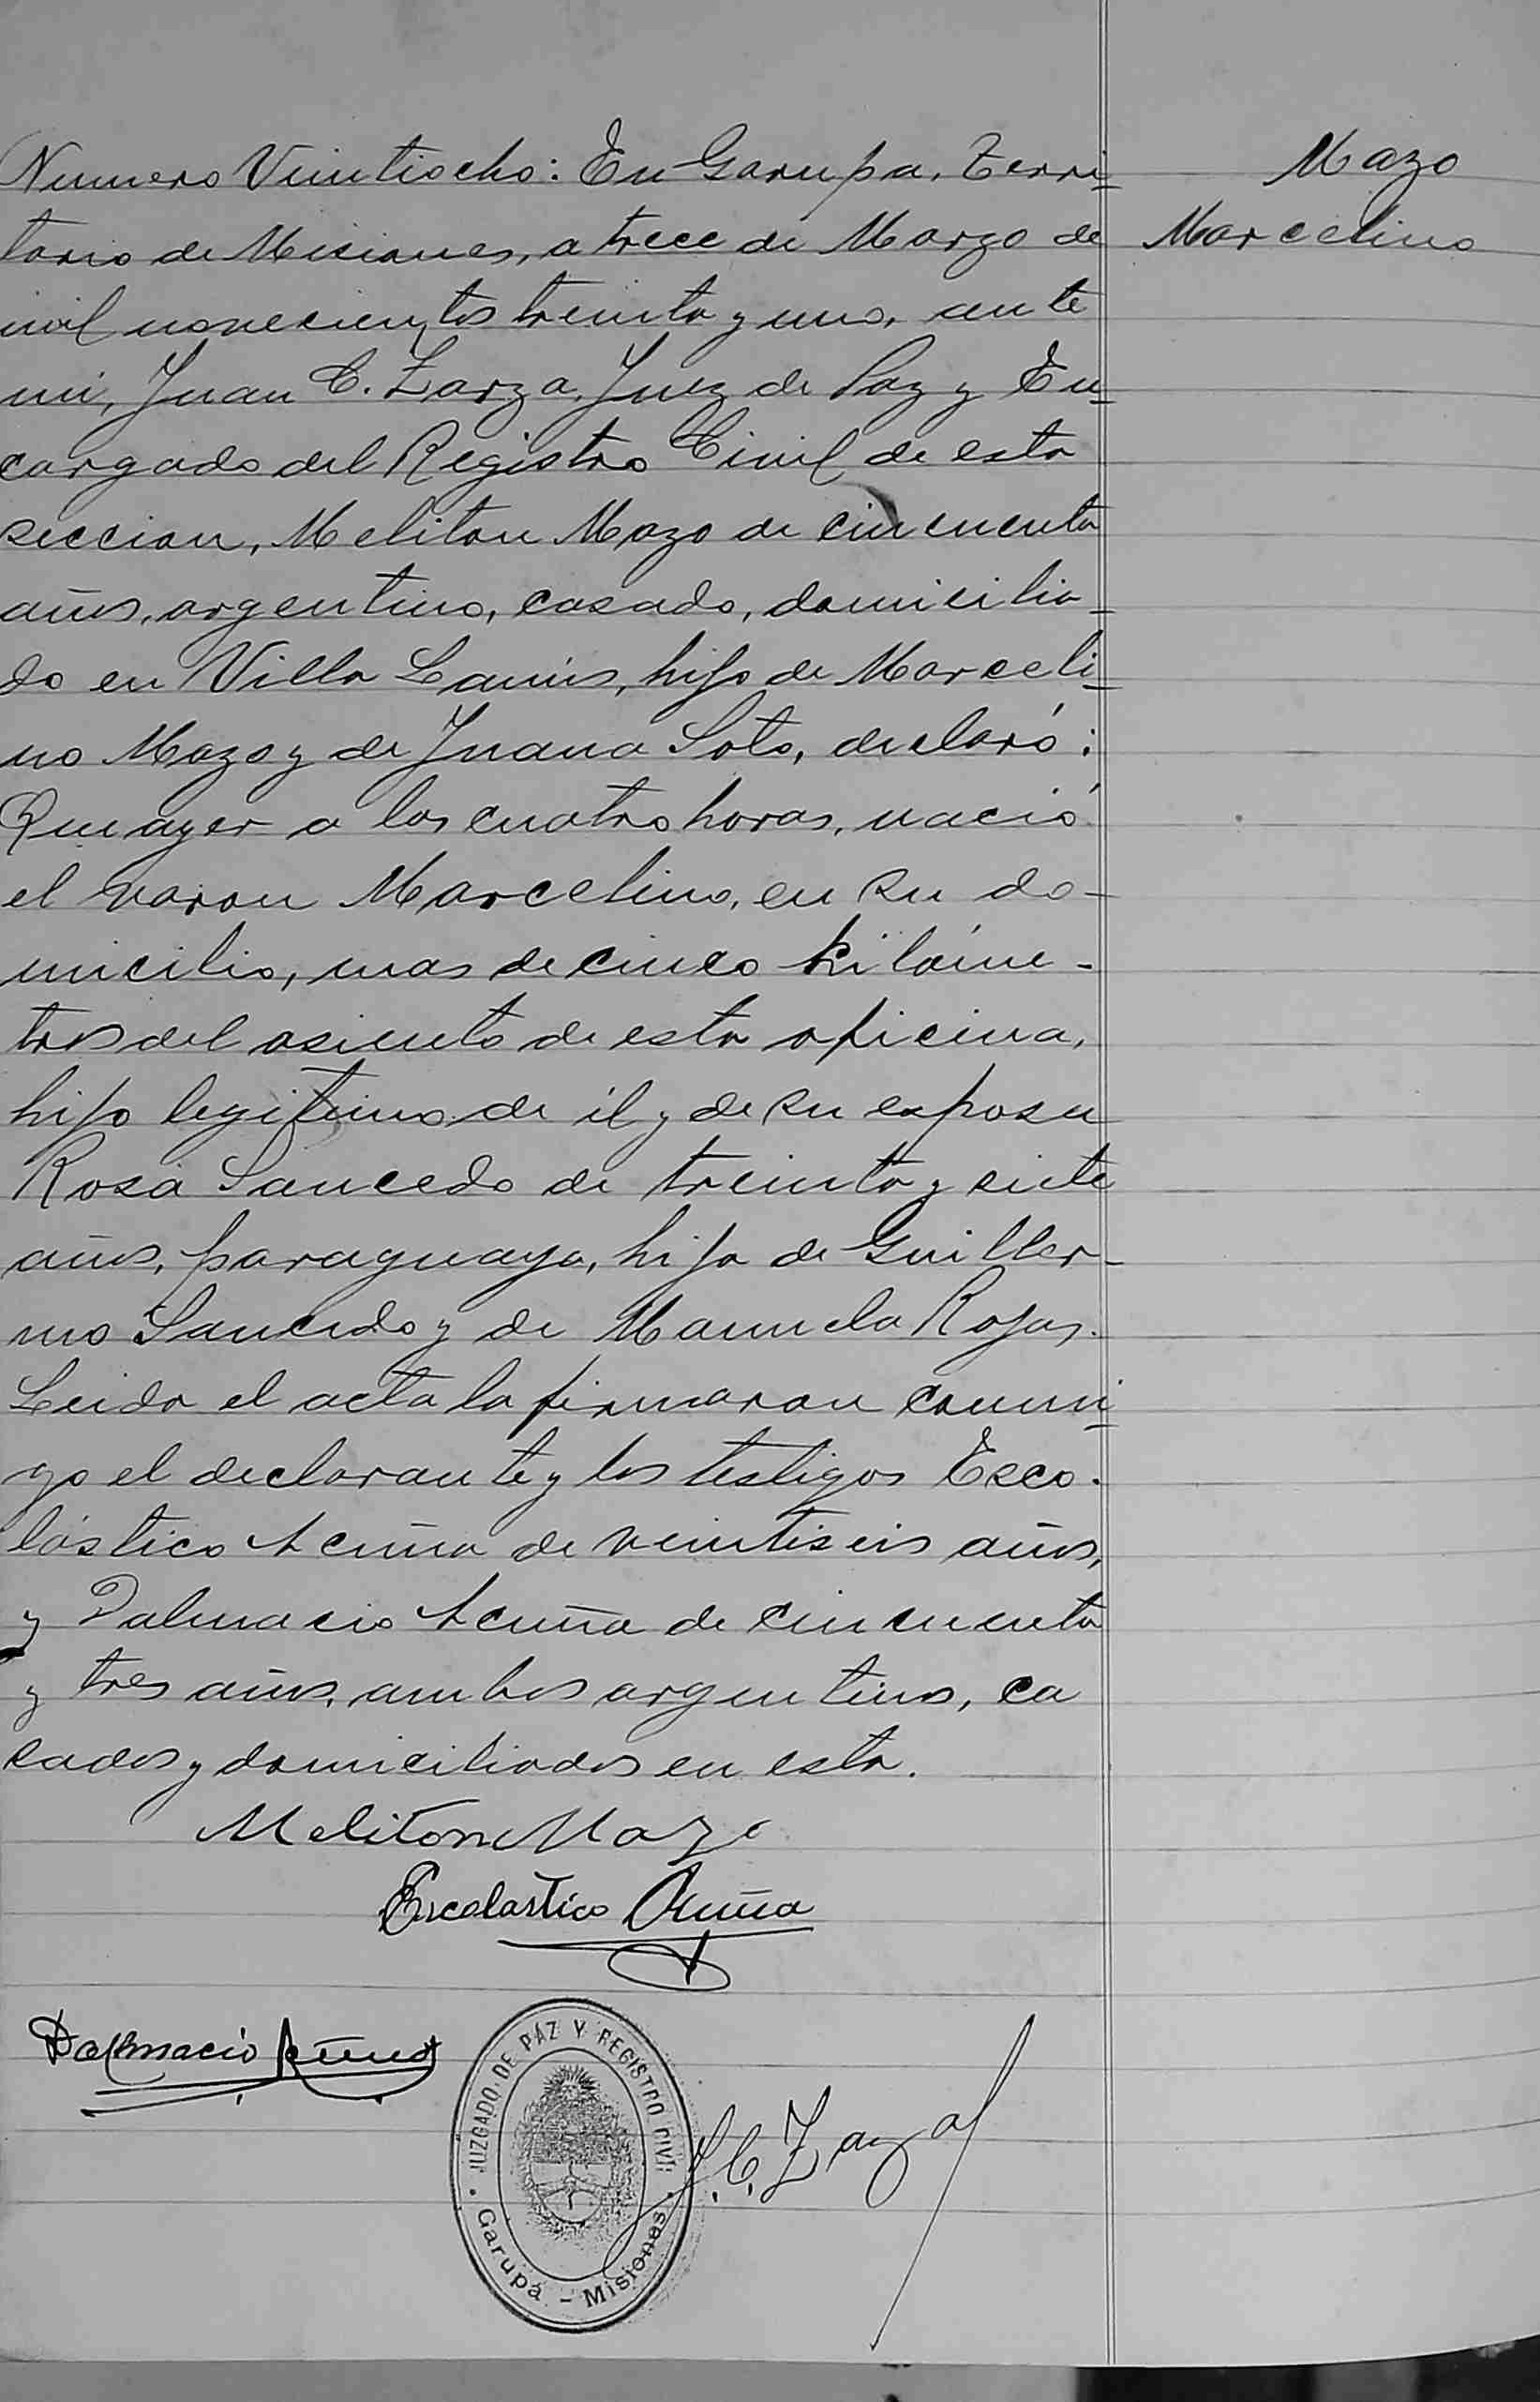 Numero Veintiocho: En Garupa, Terri-
torio de Misiones, a trece de Marzo de
mil novecientos treinta y uno, ante
mi, Juan C. Zarza, Juez de Paz y En-
cargado del Registro Civil de esta
seccion, Meliton Mazo de cincuenta
años, argentino, casado, domicilia-
do en Villa Lanús, hijo de Marceli-
no Mazo y de Juana Soto, declaró:
Que ayer a las cuatro horas, nació
el varon Marcelino, en su do-
micilio, mas de cinco kilóme-
tros del asiento de esta oficina,
hijo legitimo de él y de su esposa
Rosa Saucedo de treinta y siete
años, paraguaya, hija de Guiller-
mo Saucedo y de Manuela Rojas.
Leida el acta la firmaron conmi-
go el declarante y los testigos Esco-
lástico Acuña de veintiseis años,
y Dalmacio Acuña de cincuenta
y tres años, ambos argentinos, ca
sados y domiciliados en esta.
Meliton Mazo
Escolastico Acuña
Dalmacio Acuña
J. C. Zarza
JUZGADO DE PAZ Y REGISTRO CIVIL
Garupá - Misiones
Mazo
Marcelino